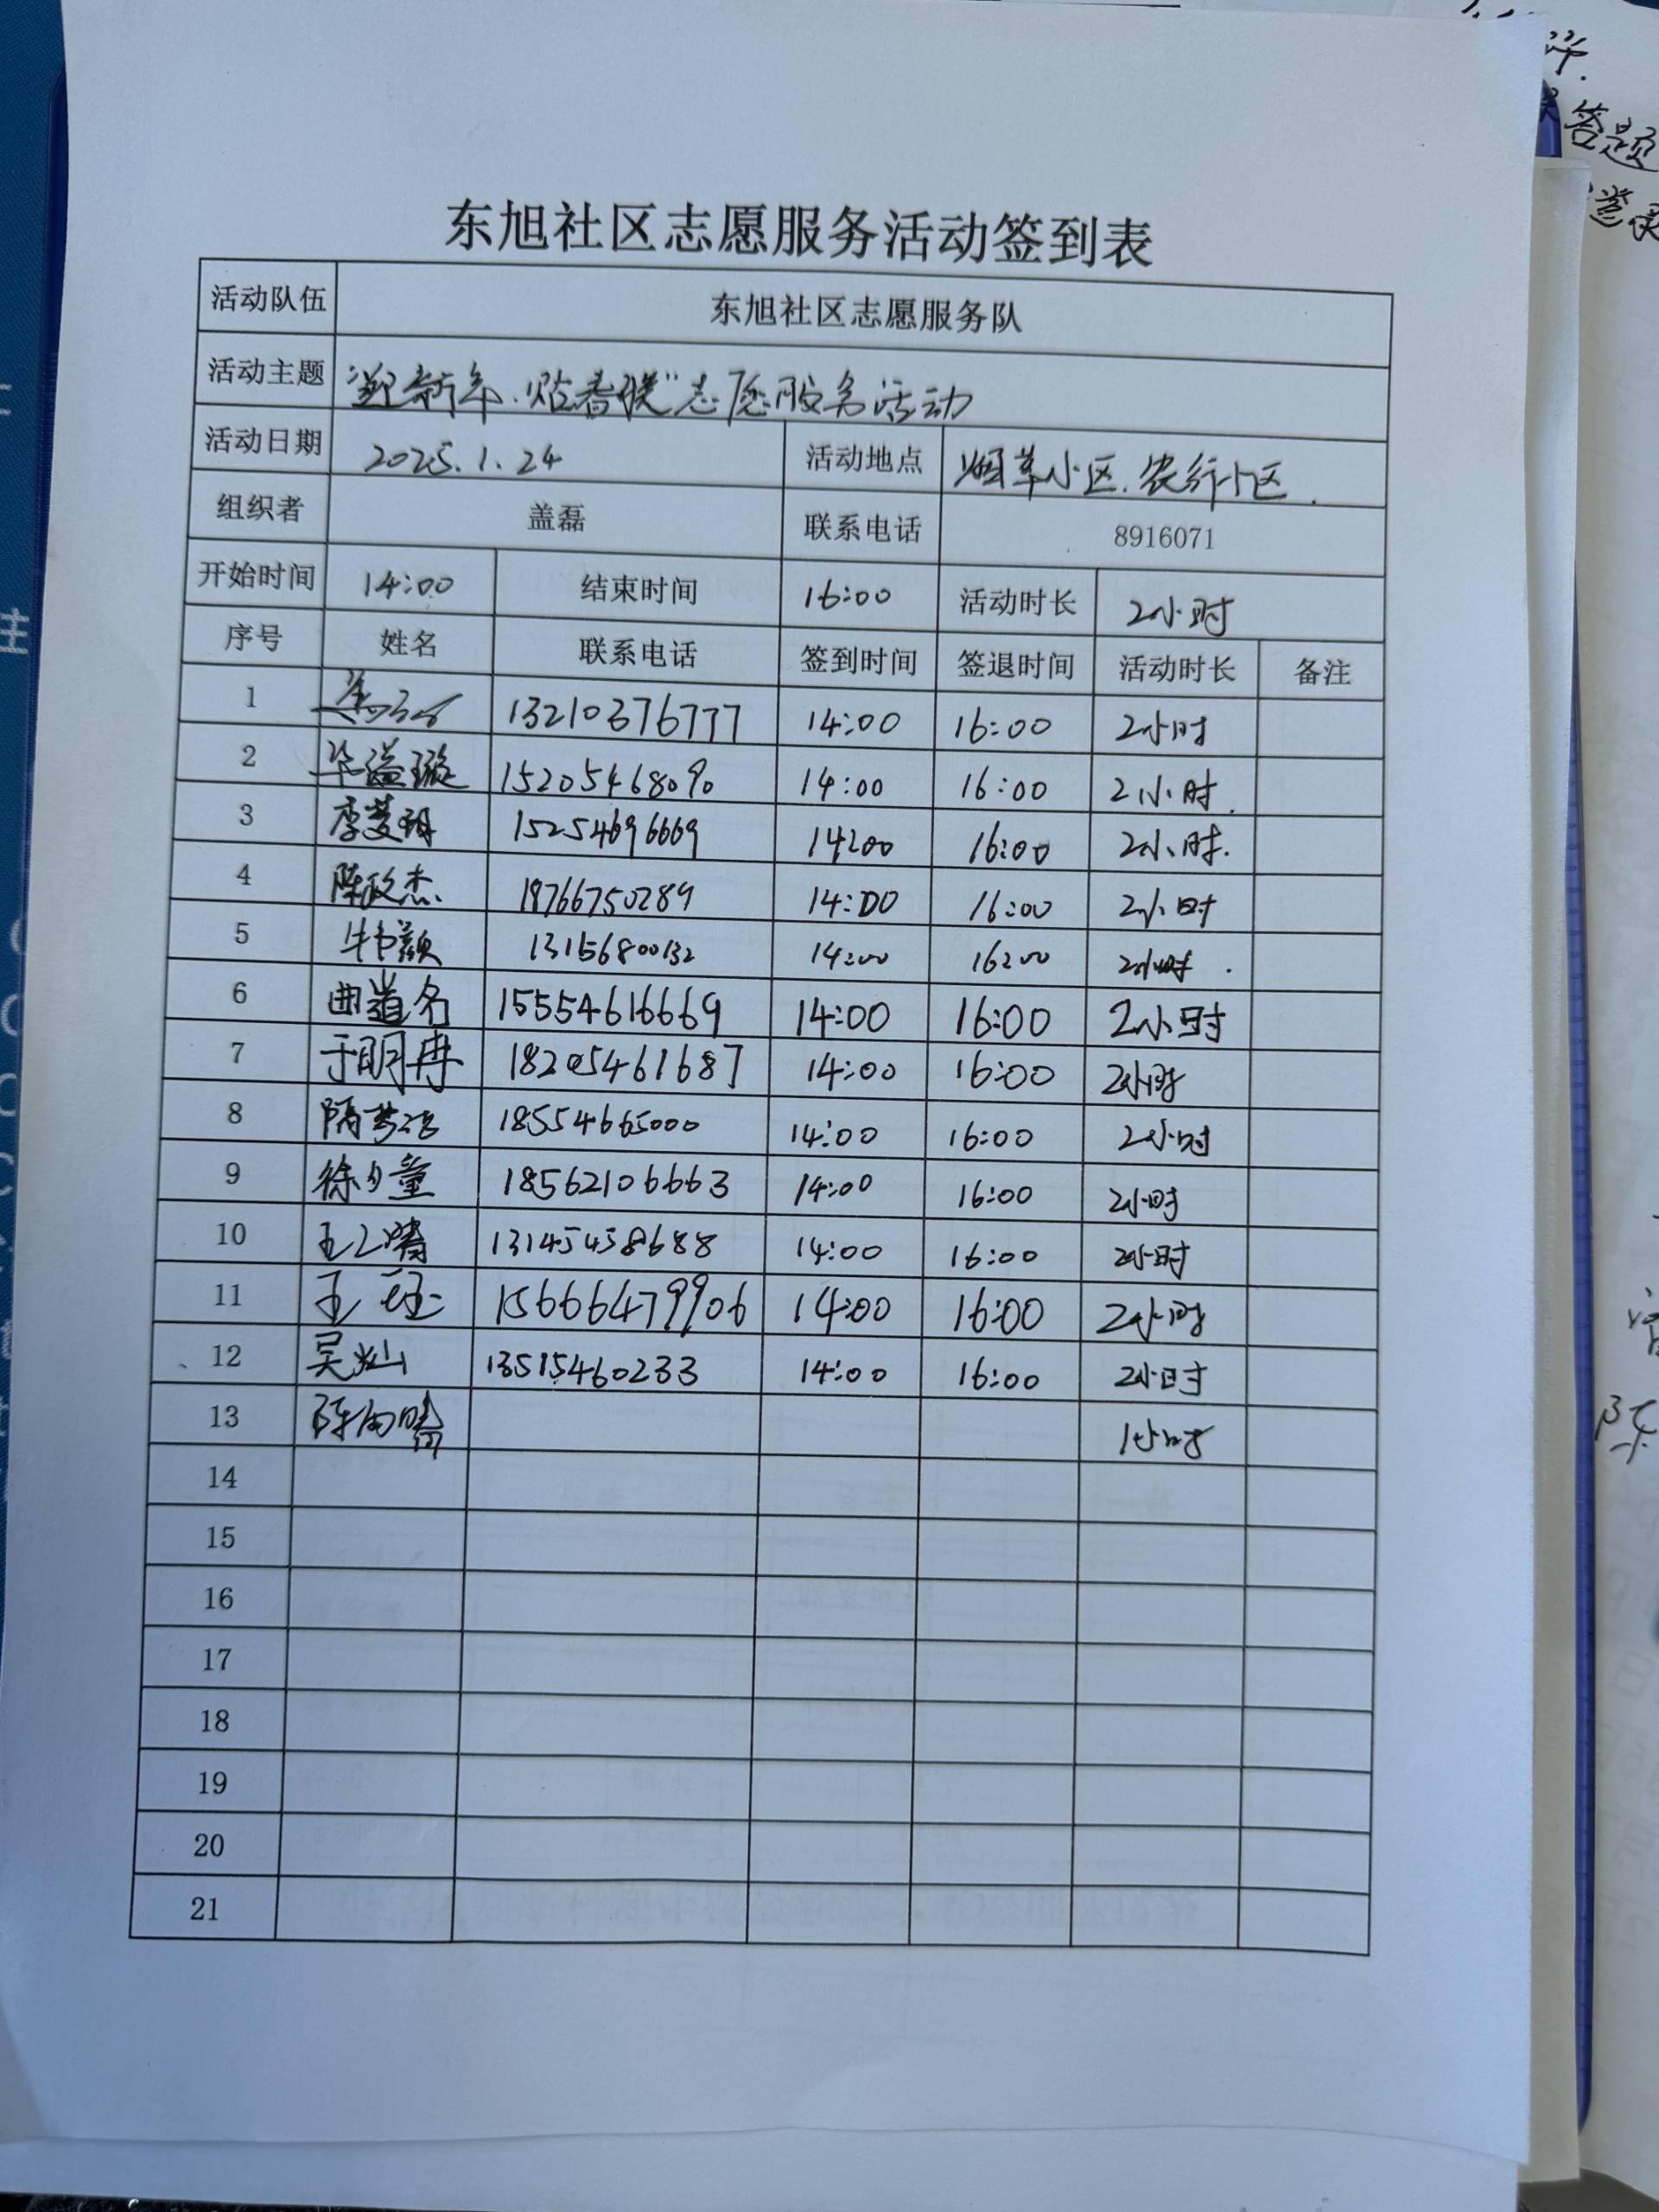 东旭社区志愿服务活动签到表
活动队伍 东旭社区志愿服务队
活动主题 “迎新年.贴春联”志愿服务活动
活动日期 2025.1.24 活动地点 烟草小区.农行小区.
组织者 盖磊 联系电话 8916071
开始时间 14:00 结束时间 16:00 活动时长 2小时
序号 姓名 联系电话 签到时间 签退时间 活动时长 备注
1 盖磊 13210376777 14:00 16:00 2小时
2 毕溢璇 15205468090 14:00 16:00 2小时.
3 15254696669 14:00 16:00 2小时.
4 陈政杰 18766750289 14:00 16:00 2小时
5 牛书颜 13156800132 14:00 16:00 2小时.
6 曲道名 15554616669 14:00 16:00 2小时
7 于明冉 18205461687 14:00 16:00 2小时
8 18554665000 14:00 16:00 2小时
9 徐夕童 18562106663 14:00 16:00 2小时
10 13145458688 14:00 16:00 2小时
11 王珏 15666479906 14:00 16:00 2小时
12 吴灿 13515460233 14:00 16:00 2小时
13 1小时
14
15
16
17
18
19
20
21
答题
登录
陈